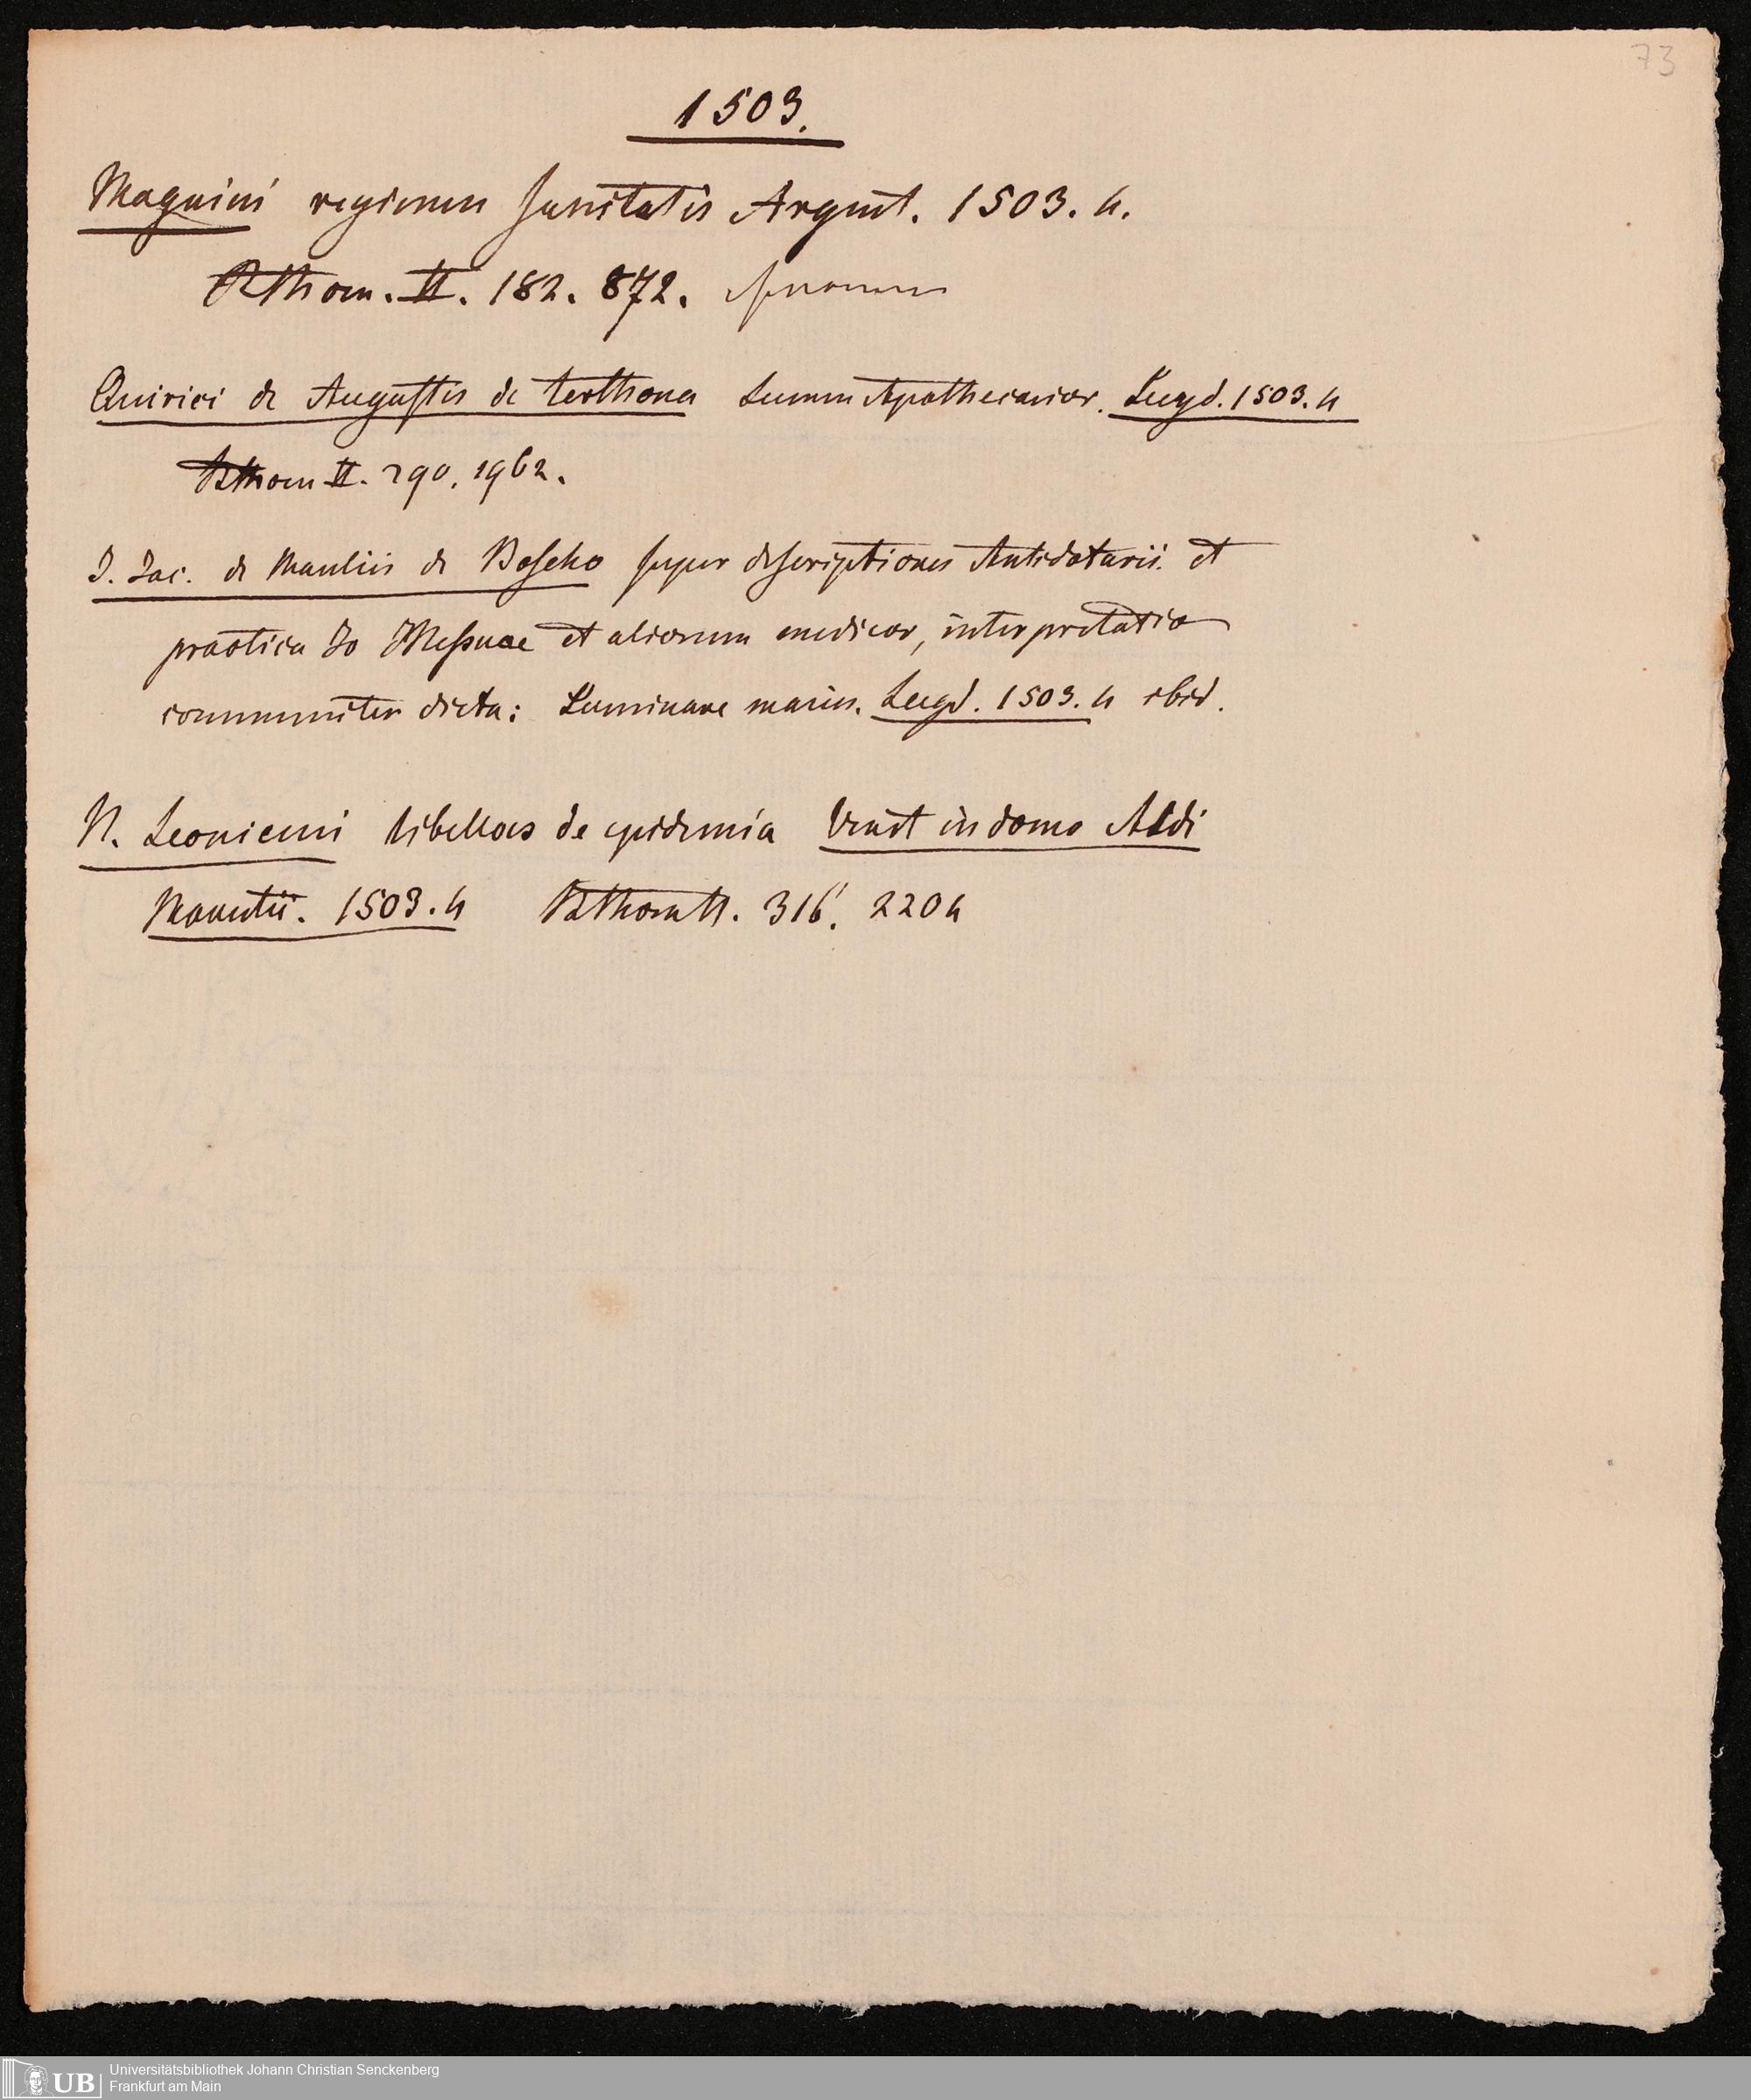 73
1503.
Magnini regimen sanitatis Argent. 1503. 4.
Bthom. II. 182. 872.
Quirici de Augustis de terthona Lumen Apothecarior. Lugd. 1503. 4
Bthom II. 290. 1962.
J. Jac. de Manliis de Boscho super descriptiones Antidotarii et
practica Jo Mesuae et aliorum medicor, interpretatio
communiter dicta: Luminare maius. Lugd. 1503. 4 ibid.
N. Leoniceni libellus de epidemia Venet in domo Aldi
Manutii. 1503. 4 Bthom II. 316. 2204
UB Universitätsbibliothek Johann Christian Senckenberg
Frankfurt am Main